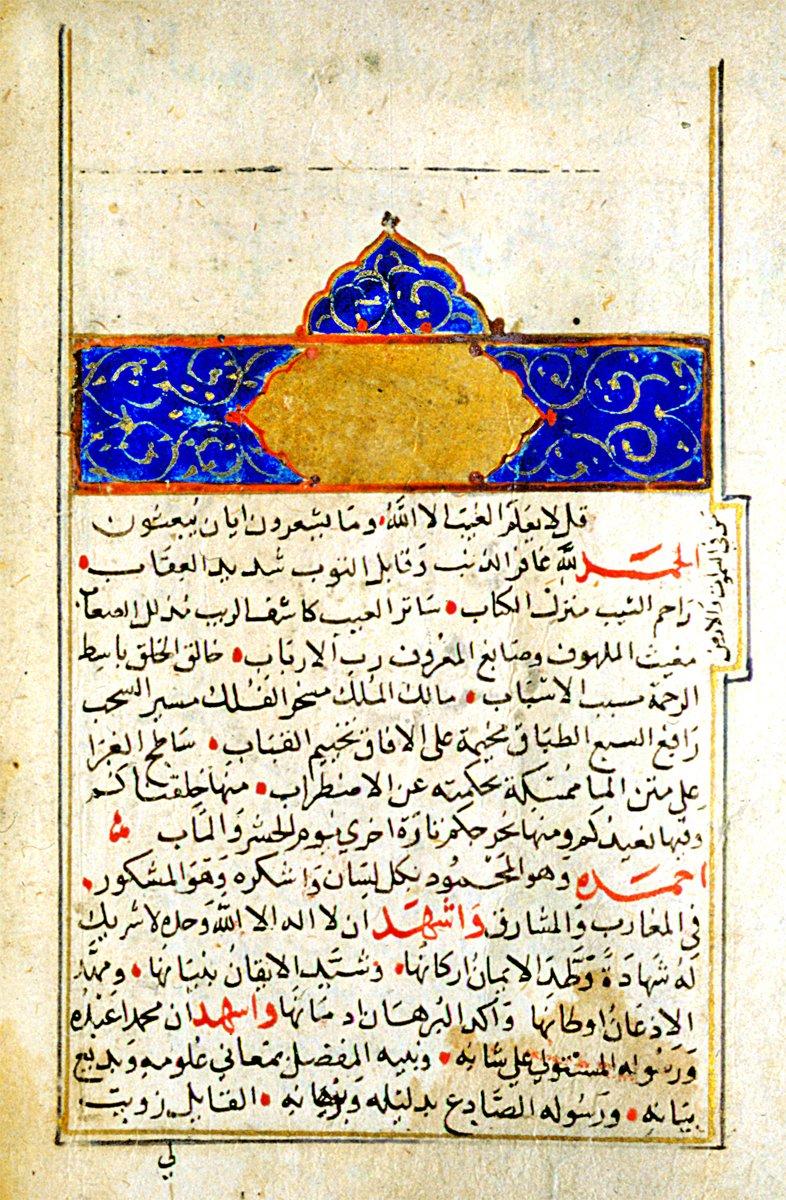 قل لا يعلم الغيب الا اللَّه وما يشعرون ايان يبعثون
في السموات والارض
الحمد للَّه غافر الذنب وقابل التوب شديد العقاب
راحم الشيب منزل الكتاب ساتر العيب كاشف الريب مذلل الصعاب
مغيث الملهوف وصانع المعروف رب الارباب خالق الخلق باسط
الرحمة مسبب الاسباب مالك الملك مسخر الفلك مسير السحب
رافع السبع الطباق مخيمة على الافاق تخييم القباب ساطح الغبرا
على متن الما ممسكة بحكمته عن الاضطراب منها خلقناكم
وفيها نعيدكم ومنها نخرجكم تارة اخرى ليوم الحشر والمآب
احمده وهو المحمود بكل لسان واشكره وهو المشكور
في المغارب والمشارق واشهد ان لا اله الا اللَّه وحده لا شريك
له شهادة وطد الايمان اركانها وشيد الايقان بنيانها ومهد
الاذعان اوطانها واكد البرهان ادمانها واشهد ان محمدا عبده
ورسوله المستولي على شانه ونبيه المفضل بمعاني علومه وبديع
بيانه ورسوله الصادع بدليله وبرهانه القايل زويت
لي